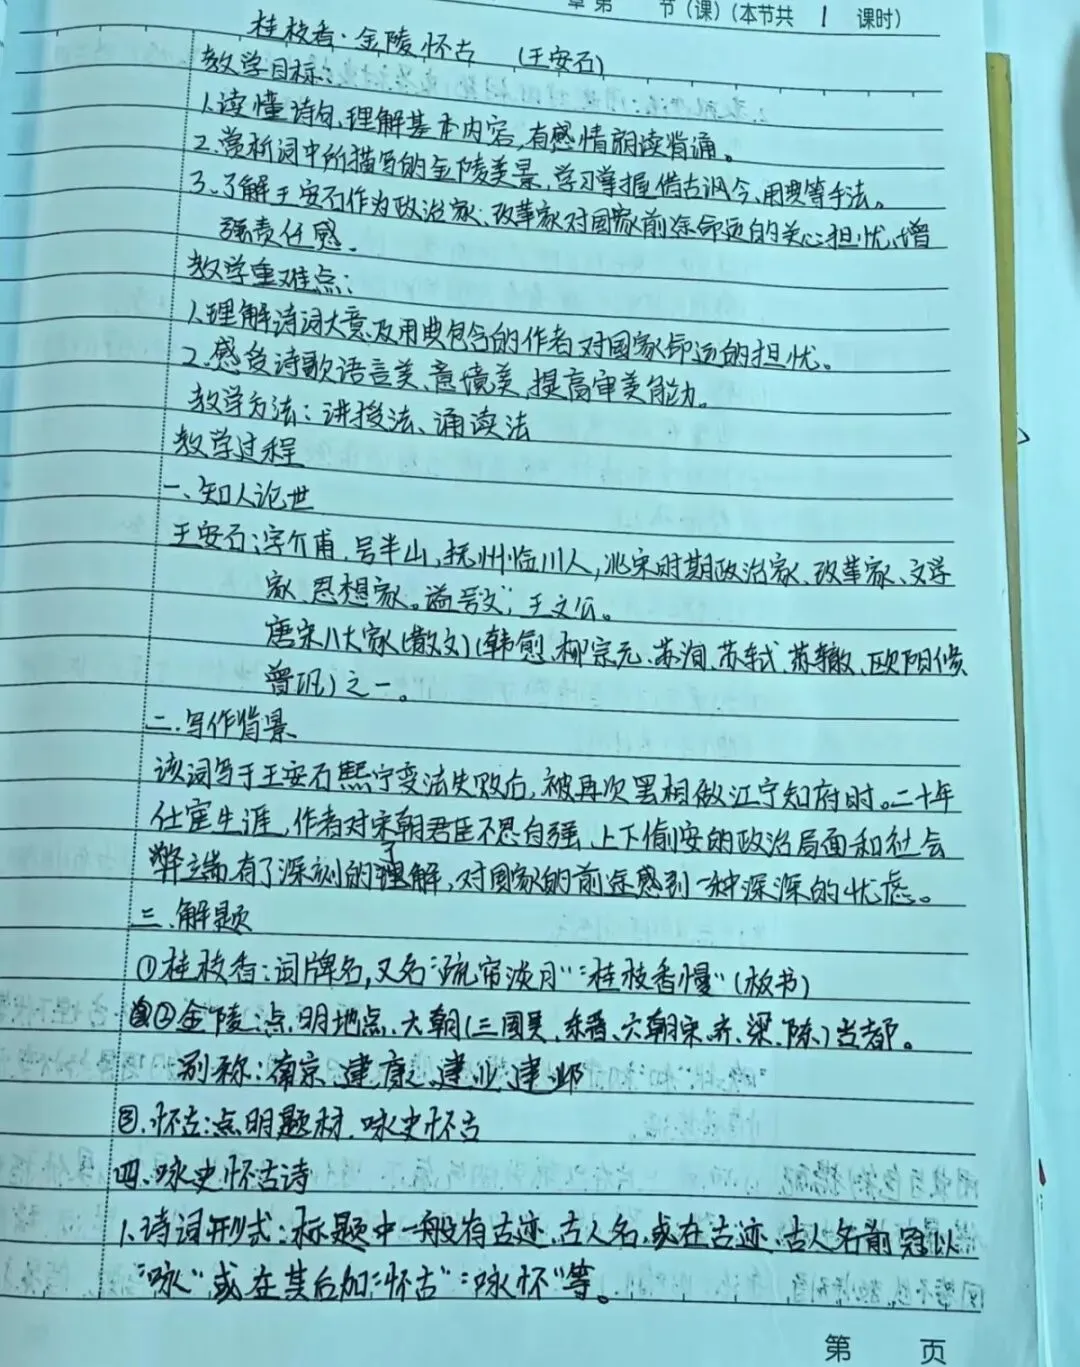 章第 节(课)(本节共 1 课时)
桂枝香·金陵怀古 (王安石)
教学目标:
1.读懂诗句,理解基本内容,有感情朗读背诵。
2.赏析词中所描写的金陵美景,学习掌握借古讽今、用典等手法。
3.了解王安石作为政治家、改革家对国家前途命运的关心担忧,增
强责任感.
教学重难点:
1.理解诗词大意及用典包含的作者对国家命运的担忧。
2.感受诗歌语言美、意境美,提高审美能力。
教学方法:讲授法、诵读法
教学过程
一、知人论世
王安石:字介甫,号半山,抚州临川人,北宋时期政治家、改革家、文学
家、思想家。谥号"文",王文公。
唐宋八大家(散文)(韩愈、柳宗元、苏洵、苏轼、苏辙、欧阳修
曾巩)之一。
二.写作背景
该词写于王安石熙宁变法失败后,被再次罢相做江宁知府时。二十年
仕宦生涯,作者对宋朝君臣不思自强、上下偷安的政治局面和社会
弊端有了深刻的了理解,对国家的前途感到一种深深的忧虑。
三.解题
①桂枝香:词牌名,又名"疏帘淡月""桂枝香慢"(板书)
②金陵:点明地点,六朝(三国吴、东晋、六朝宋、齐、梁、陈)当都。
别称:南京、建康、建业、建邺
③.怀古:点明题材.咏史怀古
四.咏史怀古诗
1.诗词形式:标题中一般有古迹、古人名,或在古迹、古人名前冠以
"咏",或在其后加"怀古""咏怀"等。
第 页